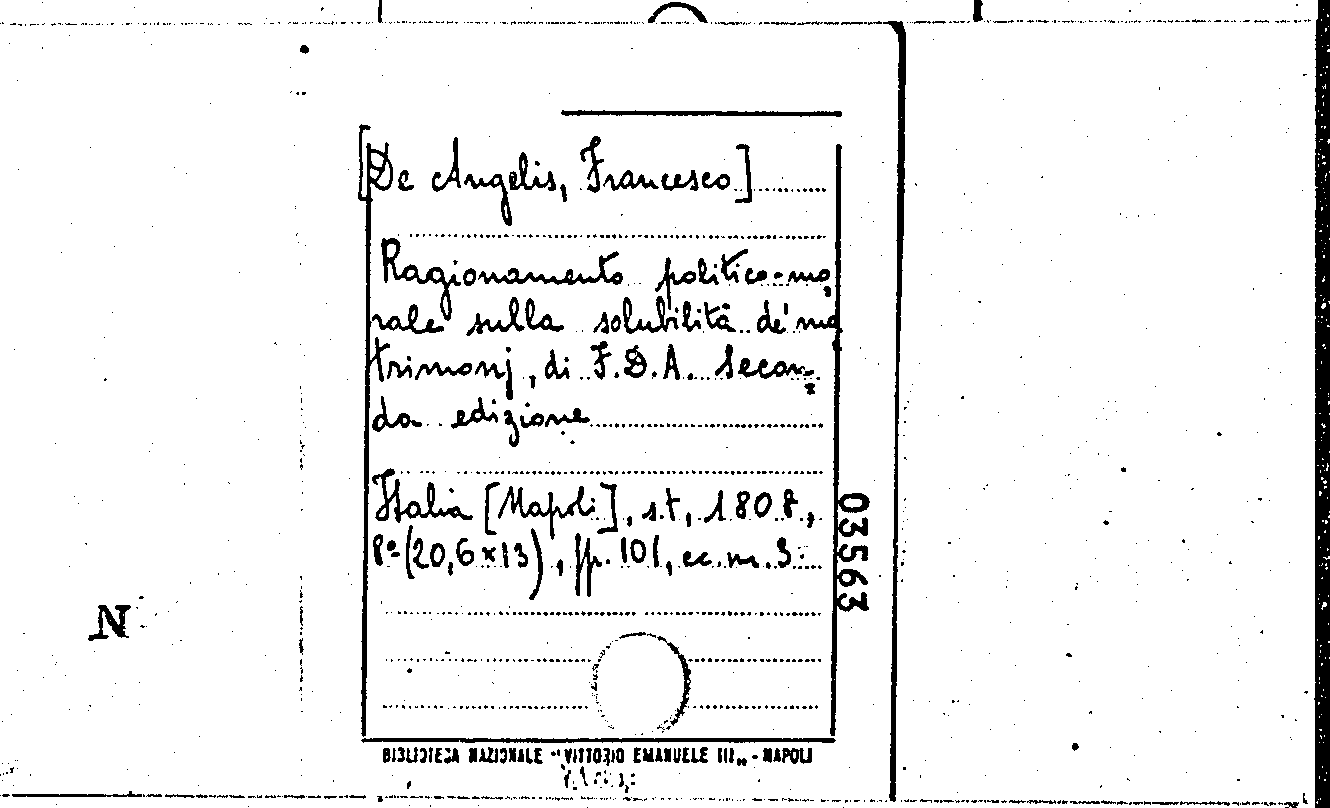 [De Angelis, Francesco]
Ragionamento politico-mo,
rale sulla solubilità de' ma
trimonj, di F.D.A. Secon,
da edizione
Italia [Napoli], s.t, 1808,
8º (20,6x13), pp. 101, cc. nn. 3.
03563
N
BIBLIOTECA NAZIONALE "VITTORIO EMANUELE III" - NAPOLI